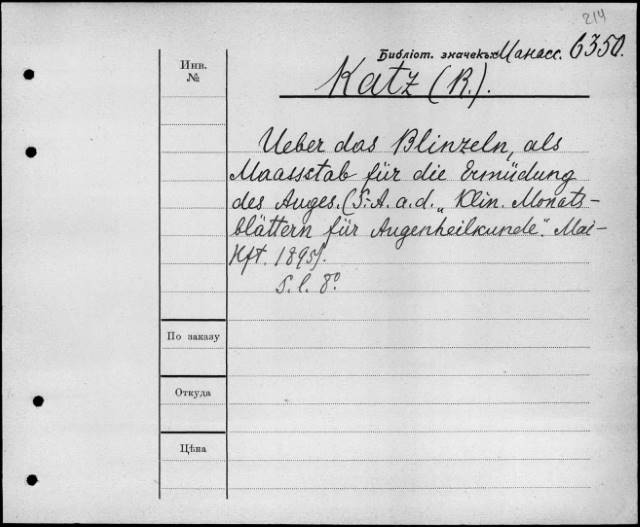 214
Библіот. значекъ Манасс. 6350.
Инв.
№
Katz (R.).
Ueber das Blinzeln, als
Maassstab für die Ermüdung
des Auges. (S.-A. a. d. „Klin. Monats-
blättern für Augenheilkunde“. Mai-
Hft. 1895).
S. l. 8°.
По заказу
Откуда
Цѣна